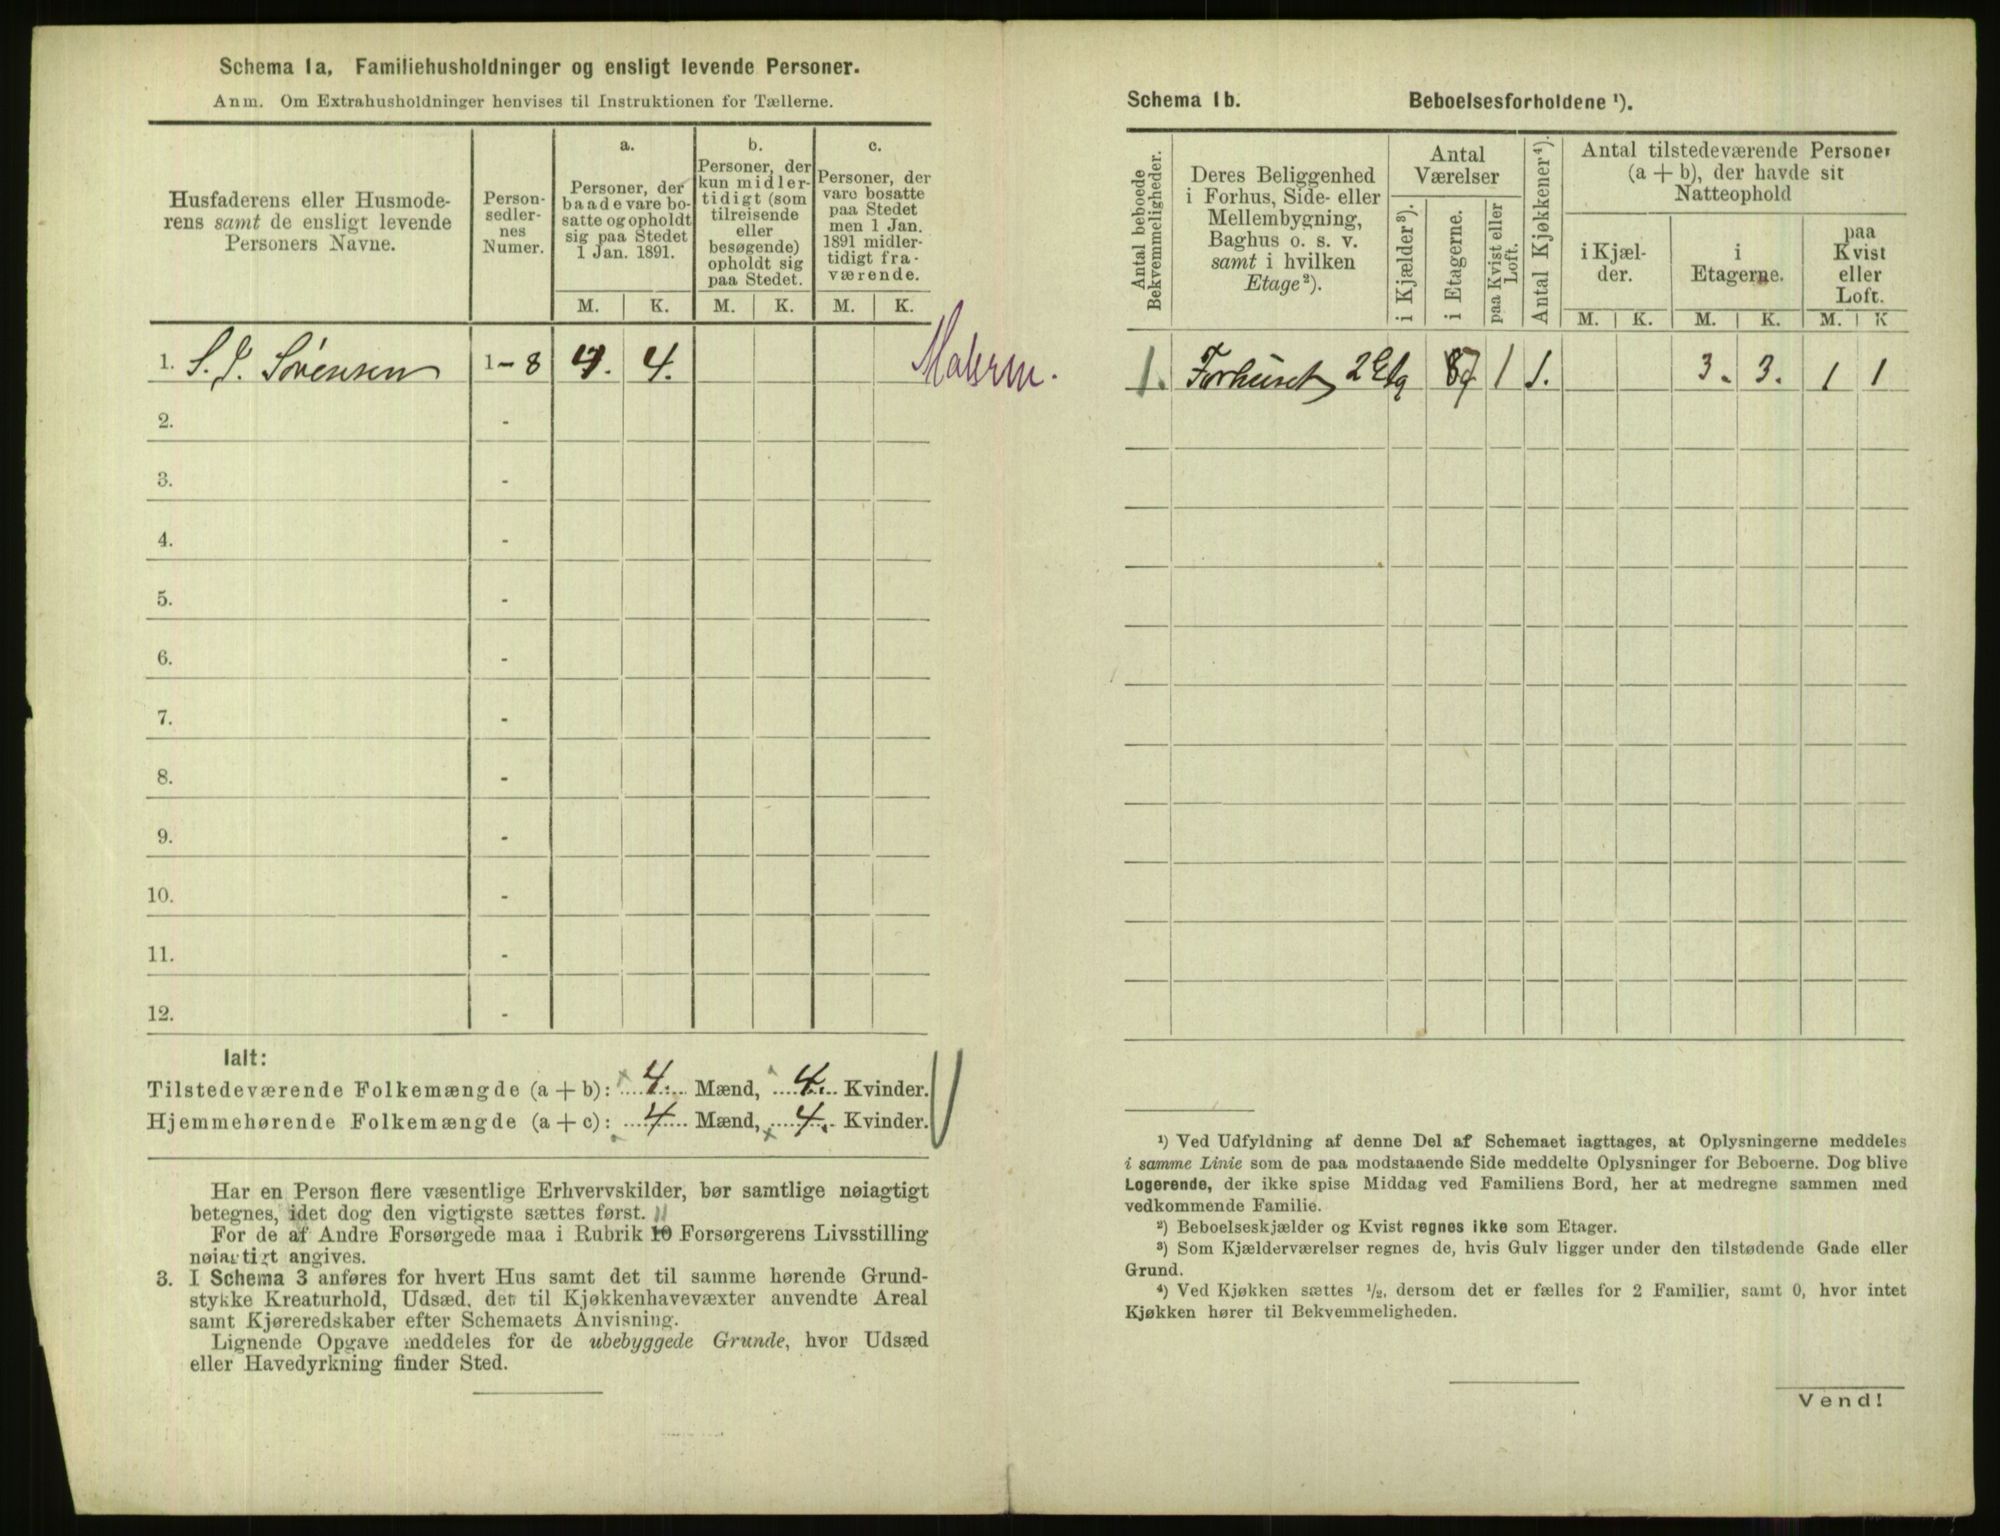 Schema 1a, Familiehusholdninger og ensligt levende Personer.
Anm. Om Extrahusholdninger henvises til Instruktionen for Tællerne.
Husfaderens eller Husmode-
rens samt de ensligt levende
Personers Navne.
Person-
sedler-
nes
Numer.
a.
Personer, der
baade vare bo-
satte og opholdt
sig paa Stedet
1 Jan. 1891.
b.
Personer, der
kun midler-
tidigt (som
tilreisende
eller
besøgende)
opholdt sig
paa Stedet.
c.
Personer, der
vare bosatte
paa Stedet
men 1 Jan.
1891 midler-
tidigt fra-
værende.
M. K. M. K. M. K.
1. S. J. Sörensen 1-8 4. 4.
2. -
3. -
4. -
5. -
6. -
7. -
8. -
9. -
10. -
11. -
12. -
Ialt:
Tilstedeværende Folkemængde (a + b): 4. Mænd, 4. Kvinder.
Hjemmehørende Folkemængde (a + c): 4 Mænd, 4. Kvinder.
Har en Person flere væsentlige Erhvervskilder, bør samtlige nøiagtigt
betegnes, idet dog den vigtigste sættes først.
For de af Andre Forsørgede maa i Rubrik 10 Forsørgerens Livsstilling
nøiagtigt angives.
3. I Schema 3 anføres for hvert Hus samt det til samme hørende Grund-
stykke Kreaturhold, Udsæd, det til Kjøkkenhavevæxter anvendte Areal
samt Kjøreredskaber efter Schemaets Anvisning.
Lignende Opgave meddeles for de ubebyggede Grunde, hvor Udsæd
eller Havedyrkning finder Sted.
Schema 1b. Beboelsesforholdene ¹).
Antal beboede
Bekvemmeligheder.
Deres Beliggenhed
i Forhus, Side- eller
Mellembygning,
Baghus o. s. v.
samt i hvilken
Etage²).
Antal
Værelser
i Kjælder³).
i Etagerne.
paa Kvist eller
Loft.
Antal Kjøkkener⁴).
Antal tilstedeværende Personer
(a + b), der havde sit
Natteophold
i Kjæl-
der.
i
Etagerne.
paa
Kvist
eller
Loft.
M. K. M. K. M. K
1. Forhuset 2 Etg 7 1 1. 3. 3. 1 1
¹) Ved Udfyldning af denne Del af Schemaet iagttages, at Oplysningerne meddeles
i samme Linie som de paa modstaaende Side meddelte Oplysninger for Beboerne. Dog blive
Logerende, der ikke spise Middag ved Familiens Bord, her at medregne sammen med
vedkommende Familie.
²) Beboelseskjælder og Kvist regnes ikke som Etager.
³) Som Kjælderværelser regnes de, hvis Gulv ligger under den tilstødende Gade eller
Grund.
⁴) Ved Kjøkken sættes ½, dersom det er fælles for 2 Familier, samt 0, hvor intet
Kjøkken hører til Bekvemmeligheden.
Vend!